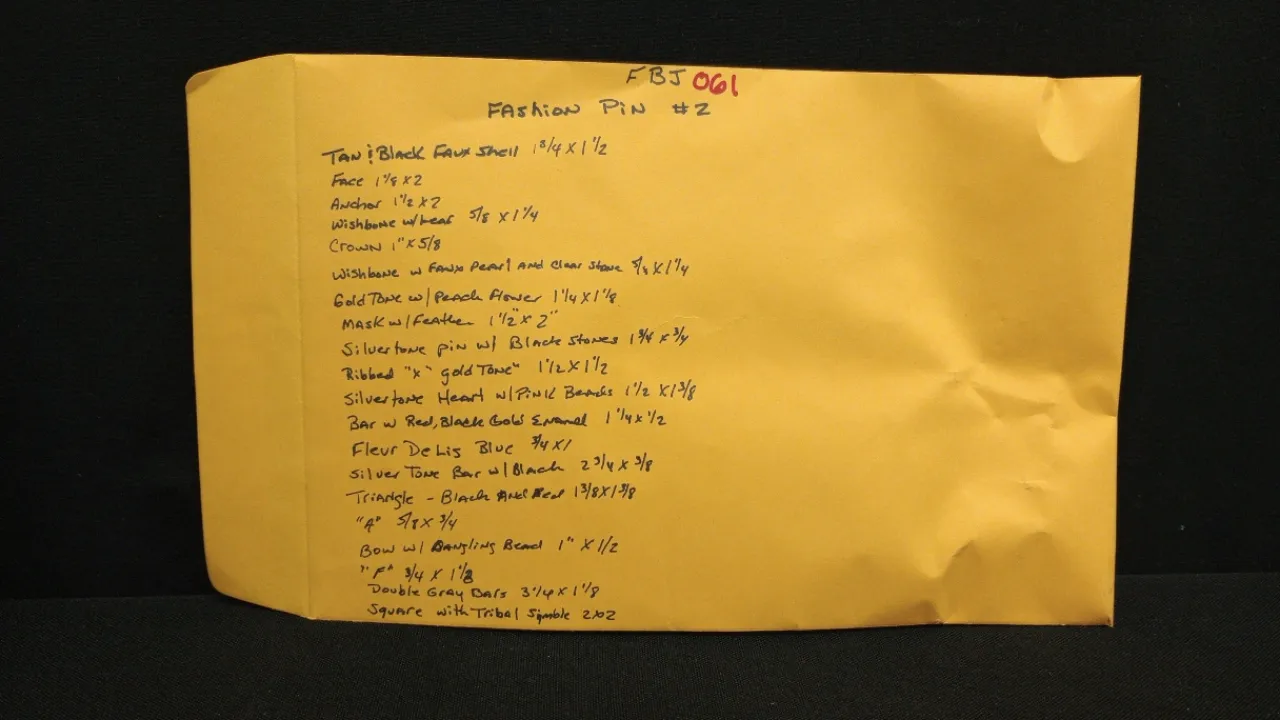 FBJ 061
Fashion Pin #2
Tan & Black Faux Shell 1 3/4 X 1 1/2
Face 1 1/8 X 2
Anchor 1 1/2 X 2
Wishbone w/ 5/8 X 1 1/4
Crown 1" X 5/8
Wishbone w Faux Pearl And Clear Stone 5/8 X 1 1/4
Gold Tone w/ Peach Flower 1 1/4 X 1 1/8
Mask w/ Feather 1 1/2" X 2"
Silvertone pin w/ Black Stones 1 3/4 X 3/4
Ribbed "X" gold Tone" 1 1/2 X 1 1/2
Silvertone Heart w/ Pink Beads 1 1/2 X 1 3/8
Bar w Red, Black Gold Enamel 1 1/4 X 1/2
Fleur De Lis Blue 3/4 X 1
Silver Tone Bar w/ Black 2 3/4 X 3/8
Triangle - Black And Red 1 3/8 X 1 3/8
"A" 5/8 X 3/4
Bow w/ Dangling Bead 1" X 1/2
"F" 3/4 X 1 1/8
Double Gray Bars 3 1/4 X 1 1/8
Square with Tribal Simble 2X2